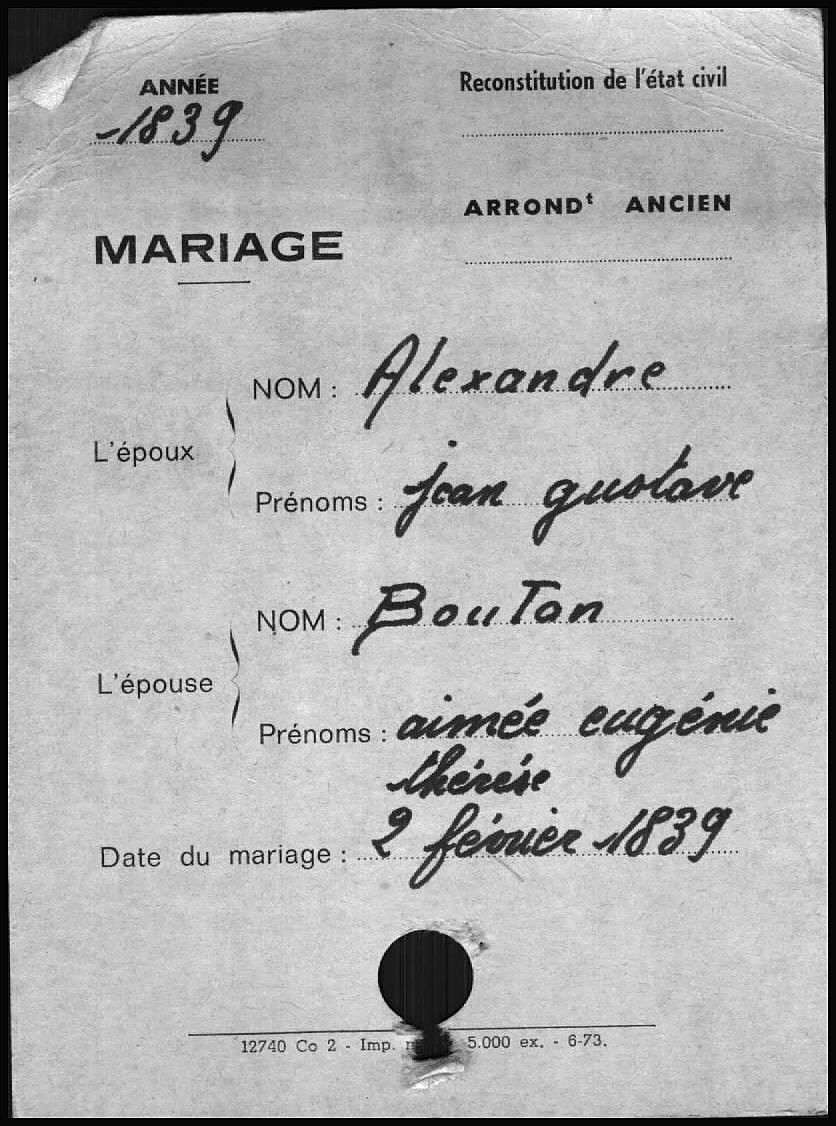 ANNÉE
1839
Reconstitution de l'état civil
ARRONDᵗ ANCIEN
MARIAGE
L'époux
NOM : Alexandre
Prénoms : jean gustave
L'épouse
NOM : Boutan
Prénoms : aimée eugénie
thérése
Date du mariage : 2 février 1839
12740 Co 2 - Imp. 5.000 ex. - 6-73.